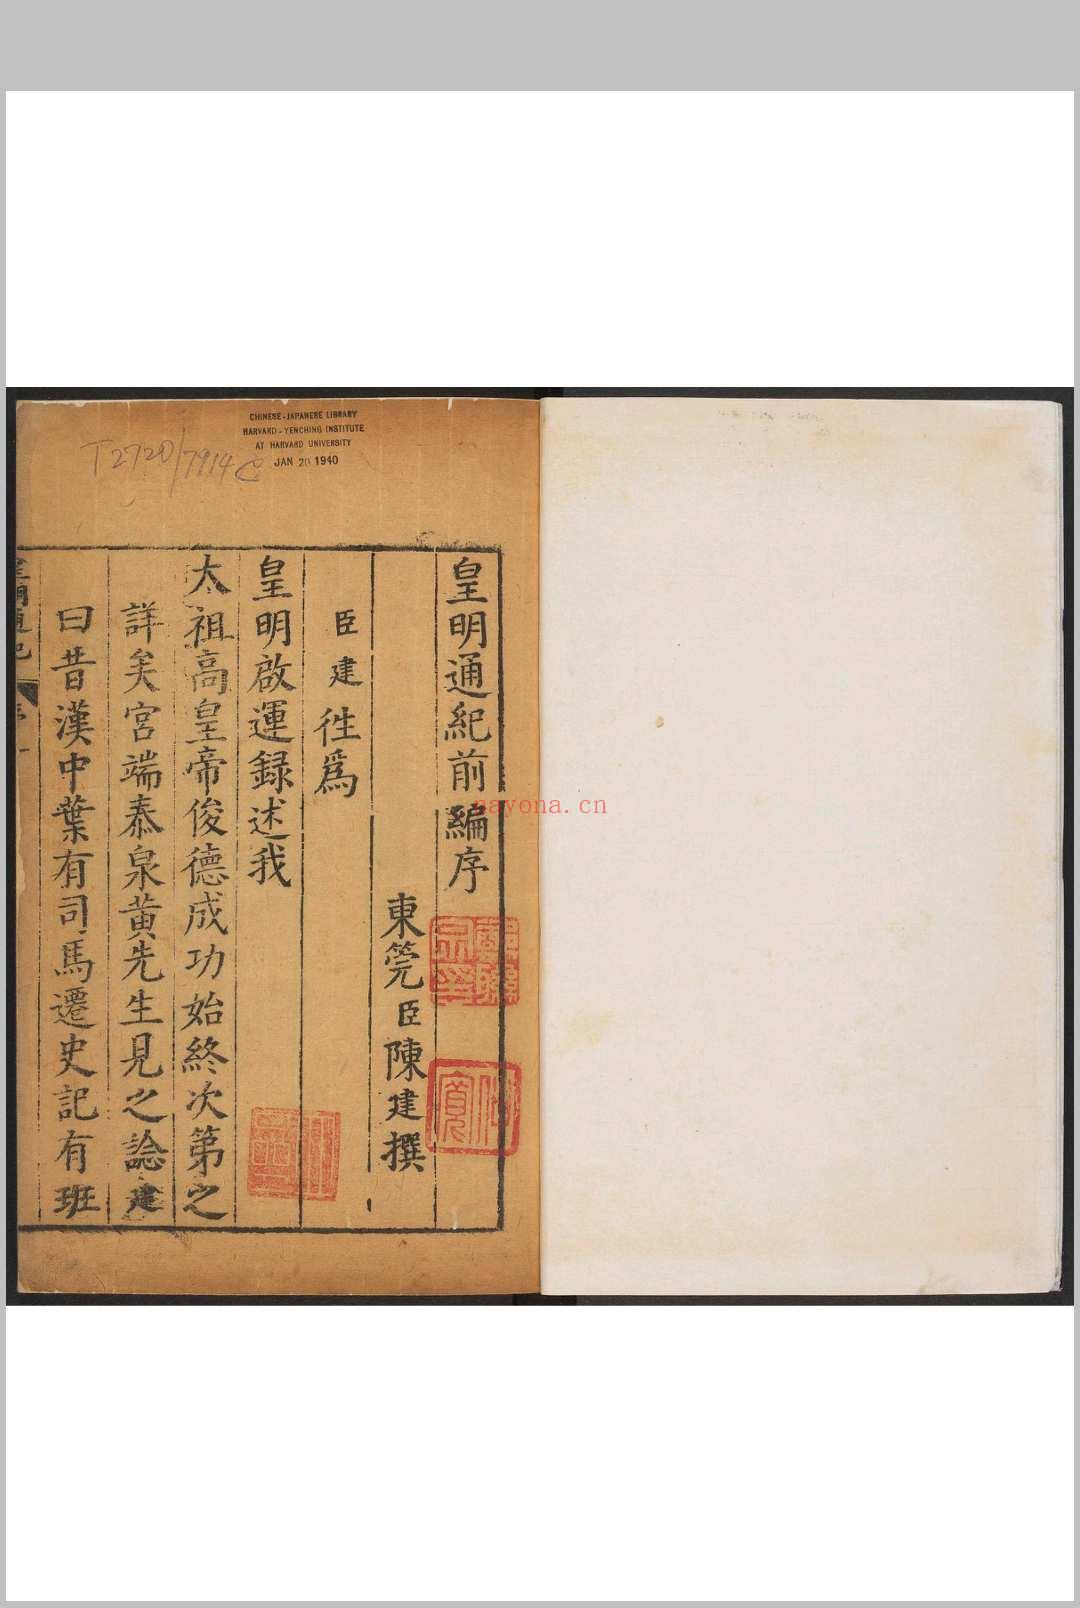 CHINESE-JAPANESE LIBRARY
HARVARD-YENCHING INSTITUTE
AT HARVARD UNIVERSITY
JAN 20 1940
T2720/7914
皇明通紀前編序
東筦臣陳建撰
臣建徃爲
皇明啟運録述我
太祖高皇帝俊德成功始終次第之
詳矣宮端泰泉黄先生見之諗建
曰昔漢中葉有司馬遷史記有班
nayona.cn